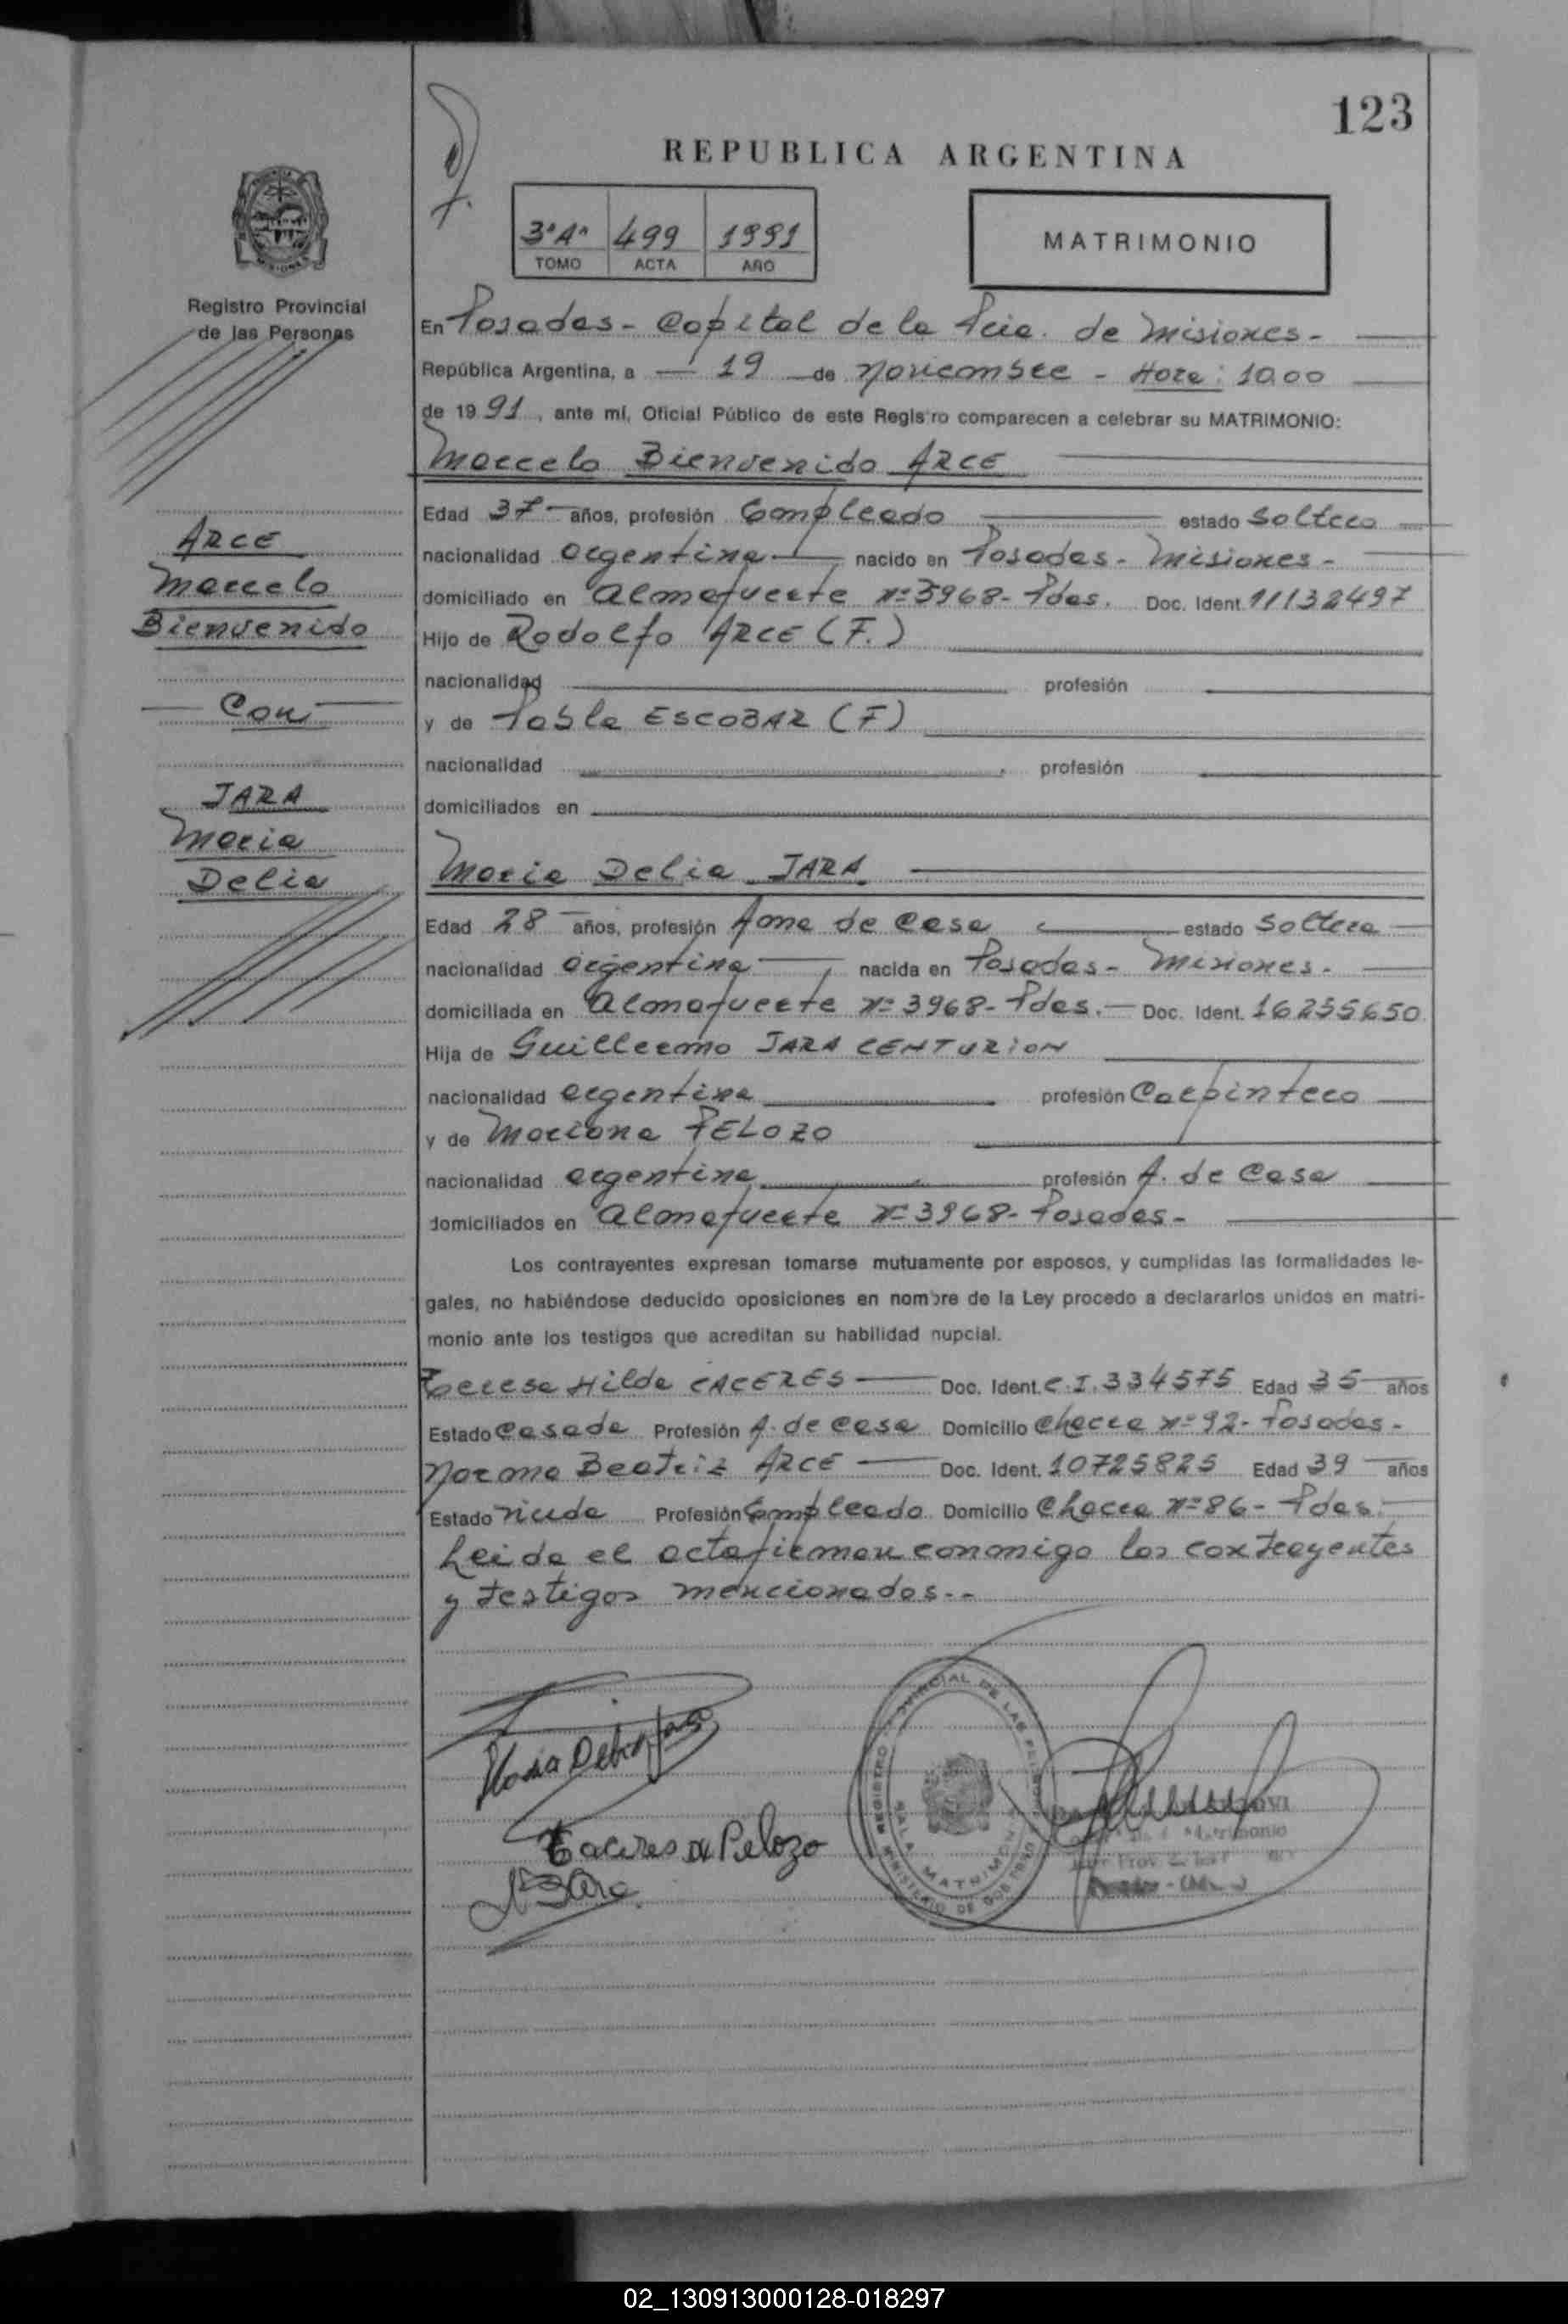 123
REPUBLICA ARGENTINA
3º"A" 499 1991
TOMO ACTA AÑO
MATRIMONIO
Registro Provincial
de las Personas
En Posadas - Capital de la Pcia. de Misiones -
República Argentina, a 19 de Noviembre - Hora: 10.00
de 1991, ante mí, Oficial Público de este Registro comparecen a celebrar su MATRIMONIO:
Marcelo Bienvenido ARCE
Edad 37 años, profesión Empleado estado Soltero
nacionalidad argentina nacido en Posadas - Misiones -
domiciliado en Almafuerte nº 3968 - Pdas. Doc. Ident. 11132497
Hijo de Rodolfo ARCE (F.)
nacionalidad profesión
y de Pabla ESCOBAR (F)
nacionalidad profesión
domiciliados en
ARCE
Marcelo
Bienvenido
Con
JARA
Maria
Delia
Maria Delia JARA
Edad 28 años, profesión Ama de Casa estado Soltera
nacionalidad argentina nacida en Posadas - Misiones -
domiciliada en Almafuerte nº 3968 - Pdas. Doc. Ident. 16255650
Hija de Guillermo JARA CENTURION
nacionalidad argentina profesión Carpintero
y de Mariana PELOZO
nacionalidad argentina profesión A. de Casa
domiciliados en Almafuerte nº 3968 - Posadas -
Los contrayentes expresan tomarse mutuamente por esposos, y cumplidas las formalidades le-
gales, no habiéndose deducido oposiciones en nombre de la Ley procedo a declararlos unidos en matri-
monio ante los testigos que acreditan su habilidad nupcial.
Teresa Hilda CACERES Doc. Ident. C.I. 334575 Edad 35 años
Estado Casada Profesión A. de Casa Domicilio Chacra nº 92 - Posadas -
Norma Beatriz ARCE Doc. Ident. 10725825 Edad 39 años
Estado Viuda Profesión Empleada Domicilio Chacra nº 86 - Pdas.
Leida el acta firman conmigo los contrayentes
y testigos mencionados --
Maria Delia Jara
T Caceres de Pelozo
NBArce
REGISTRO PROVINCIAL DE LAS PERSONAS
SALA MATRIMONIO
MINISTERIO DE GOBIERNO
Matrimonio
02_130913000128-018297